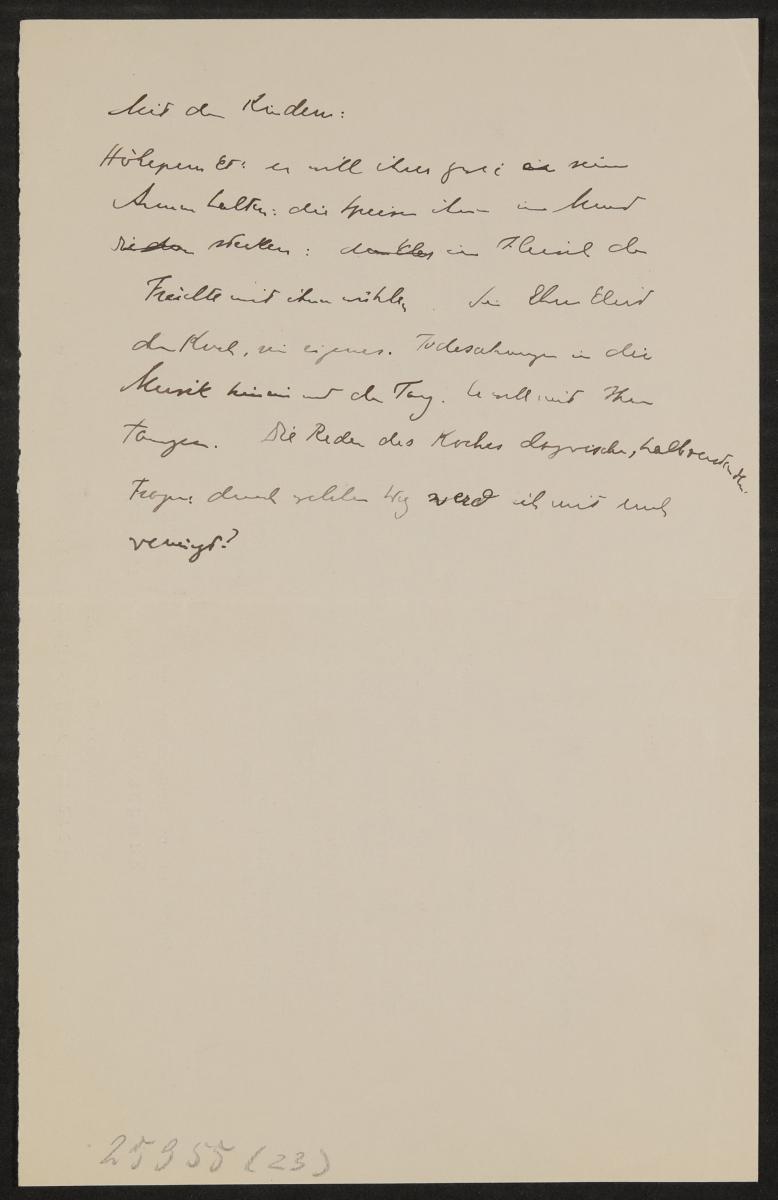 Mit den Kindern:
Höhepunkt: er will ihrer zwei in seinen
Armen halten: die Speisen ihnen in Mund
stecken: dunkles im Fleisch der
Früchte mit ihnen wühlen.
den Koch, ein eigenes. Todesahnungen in die
Musik hinein und den Tanz. Er will mit Ihnen
tanzen. Die Reden des Koches dazwischen, halbverstanden.
Fragen: durch welchen Weg werd ich mit euch
vereinigt?
25955 (23)